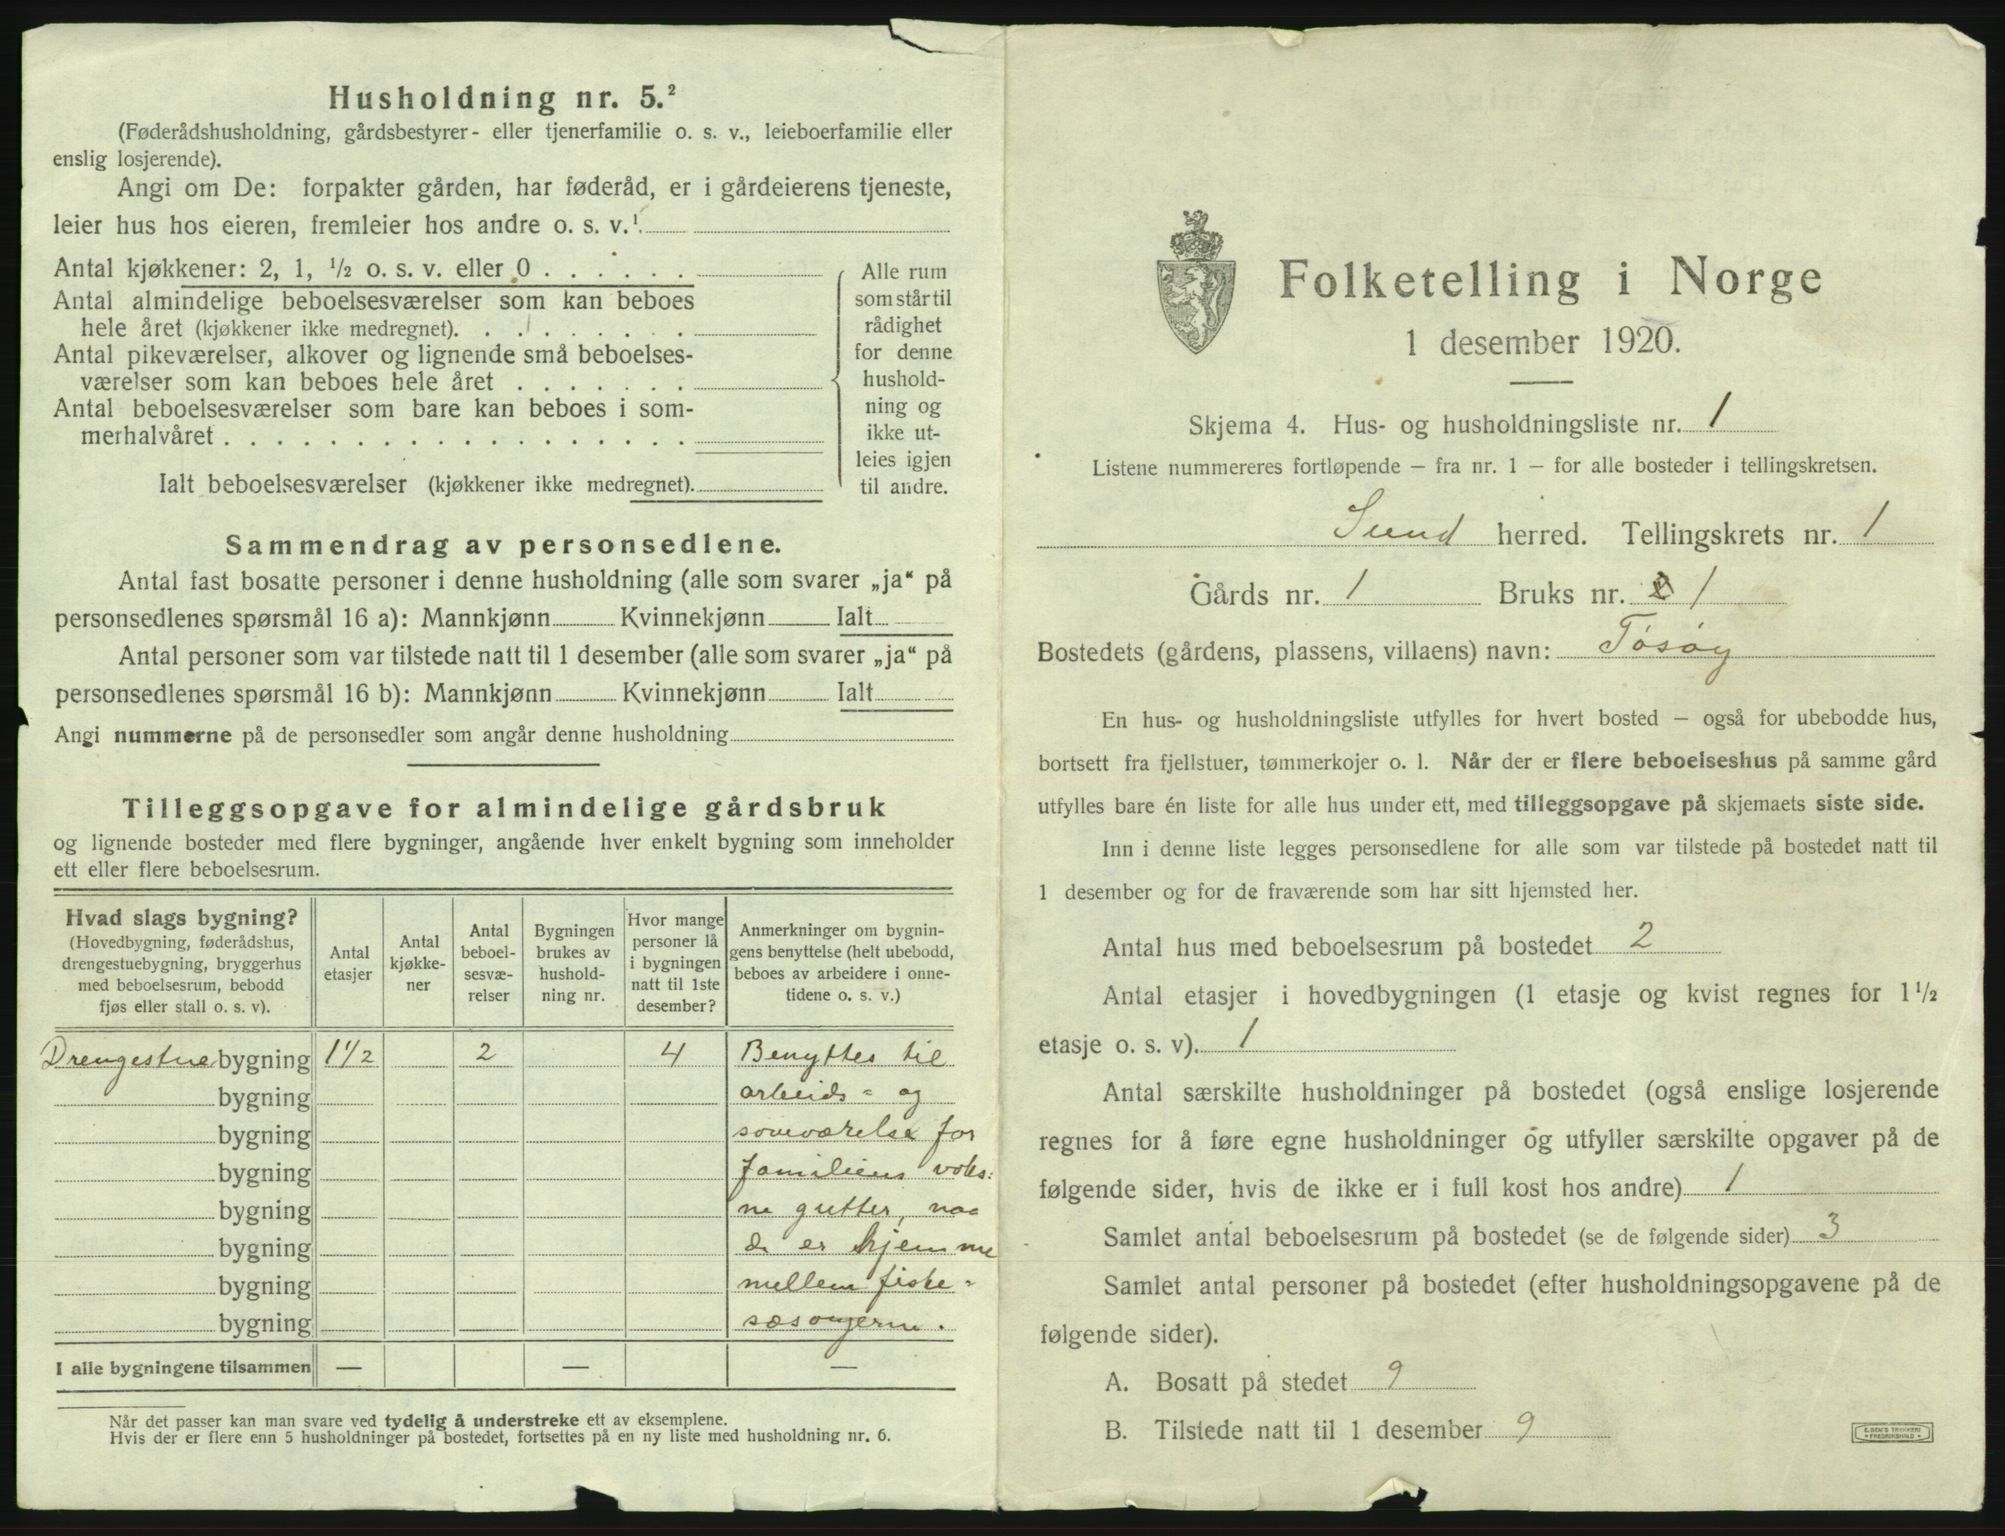 Husholdning nr. 5.²
(Føderådshusholdning, gårdsbestyrer- eller tjenerfamilie o. s. v., leieboerfamilie eller
enslig losjerende).
Angi om De: forpakter gården, har føderåd, er i gårdeierens tjeneste,
leier hus hos eieren, fremleier hos andre o. s. v.¹
Antal kjøkkener: 2, 1, ½ o. s. v. eller 0 . . . . . .
Antal almindelige beboelsesværelser som kan beboes
hele året (kjøkkener ikke medregnet). . . . . . . .
Antal pikeværelser, alkover og lignende små beboelses-
værelser som kan beboes hele året . . . . . . .
Antal beboelsesværelser som bare kan beboes i som-
merhalvåret . . . . . . . . . . . . . . . . . .
Ialt beboelsesværelser (kjøkkener ikke medregnet).
Alle rum
som står til
rådighet
for denne
hushold-
ning og
ikke ut-
leies igjen
til andre.
Sammendrag av personsedlene.
Antal fast bosatte personer i denne husholdning (alle som svarer „ja“ på
personsedlenes spørsmål 16 a): Mannkjønn Kvinnekjønn Ialt
Antal personer som var tilstede natt til 1 desember (alle som svarer „ja“ på
personsedlenes spørsmål 16 b): Mannkjønn Kvinnekjønn Ialt
Angi nummerne på de personsedler som angår denne husholdning
Tilleggsopgave for almindelige gårdsbruk
og lignende bosteder med flere bygninger, angående hver enkelt bygning som inneholder
ett eller flere beboelsesrum.
Hvad slags bygning?
(Hovedbygning, føderådshus,
drengestuebygning, bryggerhus
med beboelsesrum, bebodd
fjøs eller stall o. s. v).
Antal
etasjer
Antal
kjøkke-
ner
Antal
beboel-
sesvæ-
relser
Bygningen
brukes av
hushold-
ning nr.
Hvor mange
personer lå
i bygningen
natt til 1ste
desember?
Anmerkninger om bygnin-
gens benyttelse (helt ubebodd,
beboes av arbeidere i onne-
tidene o. s. v.)
Drengestue bygning 1½ 2 4 Benyttes til
bygning arbeids- og
bygning soveværelse for
bygning familiens voks=
bygning ne gutter, naa
bygning de er hjemme
bygning mellem fiske-
bygning sæsongerne.
I alle bygningene tilsammen — — —
Når det passer kan man svare ved tydelig å understreke ett av eksemplene.
Hvis der er flere enn 5 husholdninger på bostedet, fortsettes på en ny liste med husholdning nr. 6.
Folketelling i Norge
1 desember 1920.
Skjema 4. Hus- og husholdningsliste nr. 1
Listene nummereres fortløpende – fra nr. 1 – for alle bosteder i tellingskretsen.
Sund herred. Tellingskrets nr. 1
Gårds nr. 1 Bruks nr. 1
Bostedets (gårdens, plassens, villaens) navn: Tøsøy
En hus- og husholdningsliste utfylles for hvert bosted – også for ubebodde hus,
bortsett fra fjellstuer, tømmerkojer o. l. Når der er flere beboelseshus på samme gård
utfylles bare én liste for alle hus under ett, med tilleggsopgave på skjemaets siste side.
Inn i denne liste legges personsedlene for alle som var tilstede på bostedet natt til
1 desember og for de fraværende som har sitt hjemsted her.
Antal hus med beboelsesrum på bostedet 2
Antal etasjer i hovedbygningen (1 etasje og kvist regnes for 1½
etasje o. s. v). 1
Antal særskilte husholdninger på bostedet (også enslige losjerende
regnes for å føre egne husholdninger og utfyller særskilte opgaver på de
følgende sider, hvis de ikke er i full kost hos andre) 1
Samlet antal beboelsesrum på bostedet (se de følgende sider) 3
Samlet antal personer på bostedet (efter husholdningsopgavene på de
følgende sider).
A. Bosatt på stedet 9
B. Tilstede natt til 1 desember 9